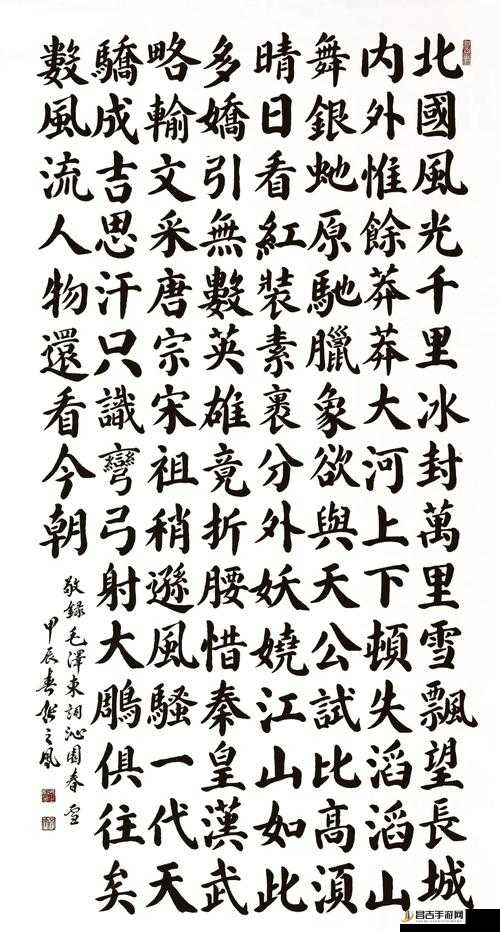 北國風光千里冰封萬里雪飄望長城
内外惟餘莽莽大河上下頓失滔滔山
舞銀虵原馳臘象欲與天公試比高湏
晴日看紅裝素裹分外妖嬈江山如此
多嬌引無數英雄竟折腰惜秦皇漢武
略輸文采唐宗宋祖稍遜風騷一代天
驕成吉思汗只識彎弓射大鵰俱往矣
數風流人物還看今朝
敬錄毛澤東詞沁園春雪
甲辰春之風
昌吉手游网